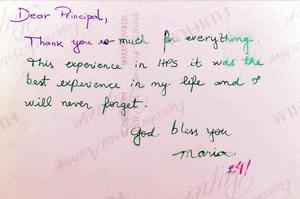 Dear Principal,
Thank you so much for everything.
This experience in HPS it was the
best experience in my life and I
will never forget.
God bless you
Maria